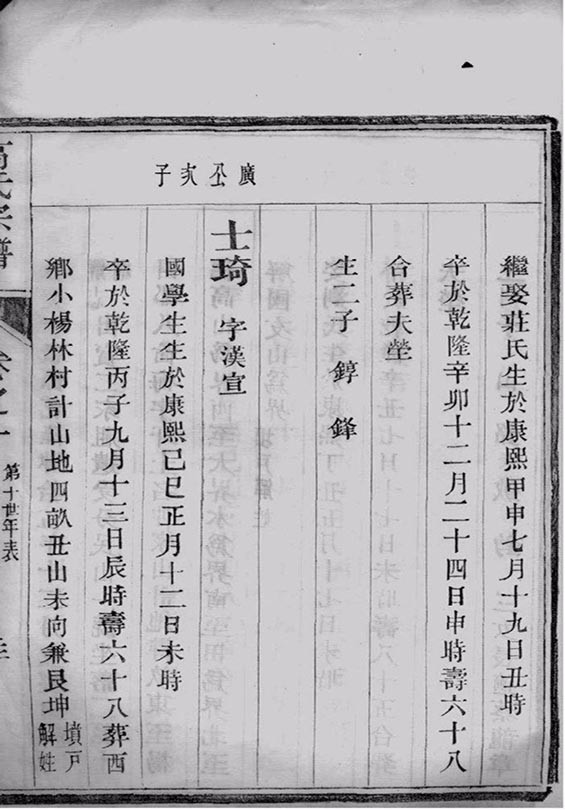 繼娶莊氏生於康熙甲申七月十九日丑時
卒於乾隆辛卯十二月二十四日申時壽六十八
合葬夫塋
生二子 錞 鋒
廣公次子
士琦 字漢宣
國學生生於康熙己巳正月十二日未時
卒於乾隆丙子九月十三日辰時壽六十八葬西
鄉小楊林村計山地四畝丑山未向兼艮坤 墳戶
解姓
氏宗譜
第十世年表